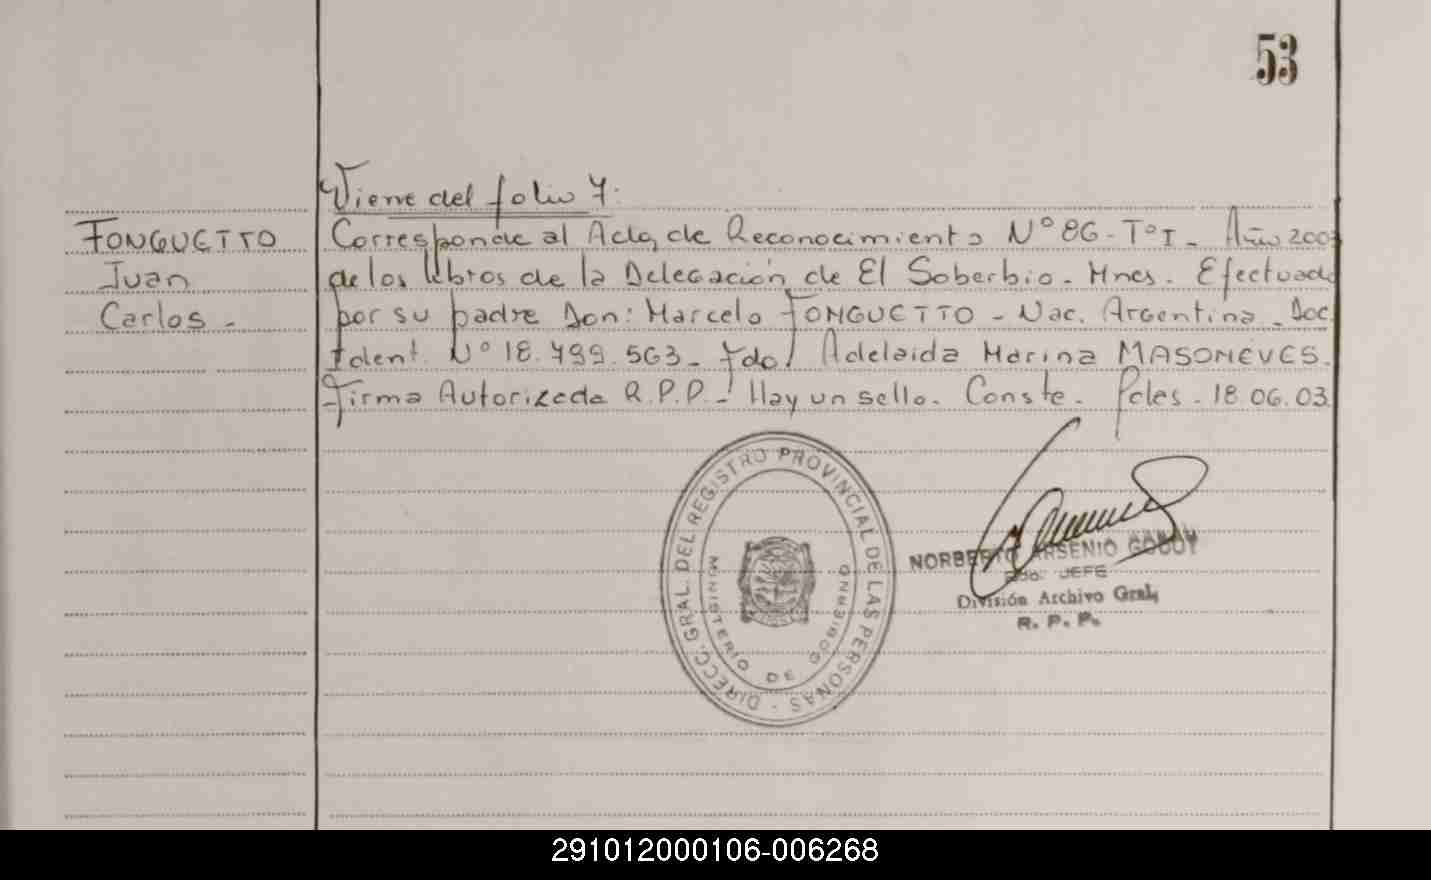 53
Viene del folio 7:
FONGUETTO
Juan
Carlos -
Corresponde al Acta de Reconocimiento Nº 86 - Tº I - Año 2003
de los libros de la Delegación de El Soberbio - Mnes. Efectuado
por su padre Don: Marcelo FONGUETTO - Nac. Argentina - Doc.
Ident. Nº 18.799.563 - Fdo/ Adelaida Marina
Firma Autorizada R.P.P. - Hay un sello. Conste. Pdas. 18.06.03
DIRECC. GRAL. DEL REGISTRO PROVINCIAL DE LAS PERSONAS -
MINISTERIO DE GOBIERNO
NORBERTO ARSENIO GODOY
JEFE
División Archivo Gral.
R. P. P.
291012000106-006268